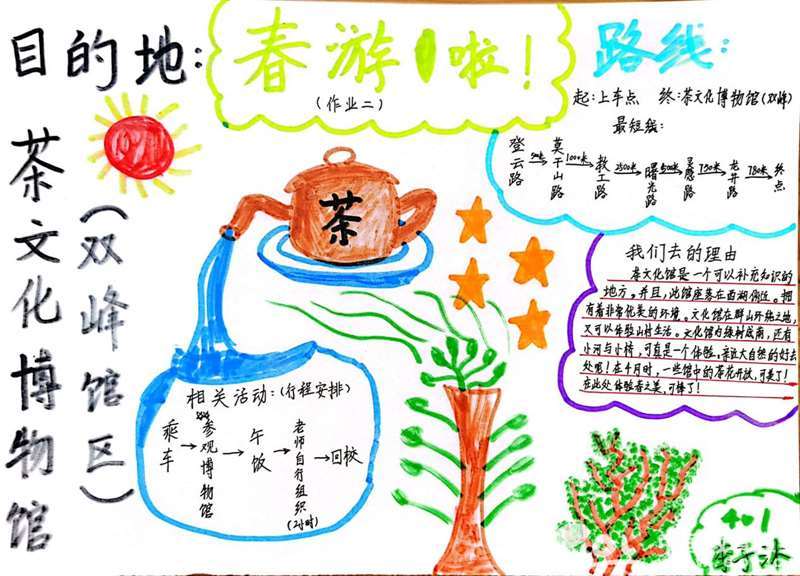 目的地:
茶文化博物馆
(双峰馆区)
春游啦!
(作业二)
路线:
起:上车点 终:茶文化博物馆(双峰)
最短线:
登云路 莫干山路 1000米 教工路 2500米 曙光路 500米 灵隐路 750米 龙井路 780米 终点
茶
我们去的理由
茶文化馆是一个可以补充知识的
地方。并且,此馆座落在西湖倒近。拥
有着非常优美的环境。文化馆在群山环绕之地,
又可以体验山村生活。文化馆内绿树成荫,还有
小河与小桥,可真是一个体验,亲近大自然的好去
处呢!在4月时,一些馆中的茶花开放,可美了!
在此处体验春之美,可棒了!
相关活动:(行程安排)
乘车→参观博物馆→午饭→老师自行组织(2小时)→回校
401